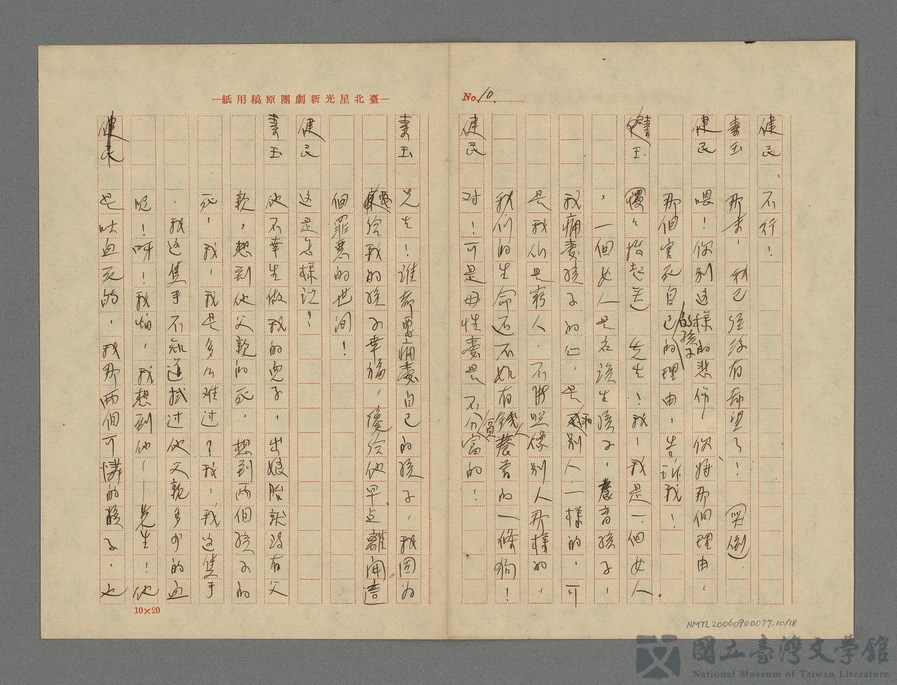 No. 10.
健民 不行！
素玉 那末，我已經沒有希望了！（哭倒）
健民 喂！你別這樣的悲傷，你將那個理由，
那個害死自己的孩子的理由，告訴我！
素玉 （慢慢抬起差）先生！我，我是一個女人，
，一個女人是名該生孩子，養育孩子，
我痛愛孩子的心，是和別人一樣的，可
是我們是窮人，不能照樣別人那樣的，
我們的生命还不如有錢人養育的一條狗！
健民 对！可是母性愛是不分富的！
臺北星光新劇團原稿用紙
素玉 先生！誰都要痛愛自己的孩子，我因為
要給我的孩子幸福，儘给他早点離開這
個罪惡的世间！
健民 這是怎樣说？
素玉 他不幸生做我的兒子，出娘胎就没有父
親，想到他父親的死，想到两個孩子的
死，我，我是多么难过？我，我這隻手
，我這隻手不知道拭过他父親多少的血
呢！呀！我怕，我想到他——先生！他
健民
是吐血死的，我那两個可憐的孩子，也
10×20
NMTL20060900077,10/18
國立臺灣文學館
National Museum of Taiwan Literature